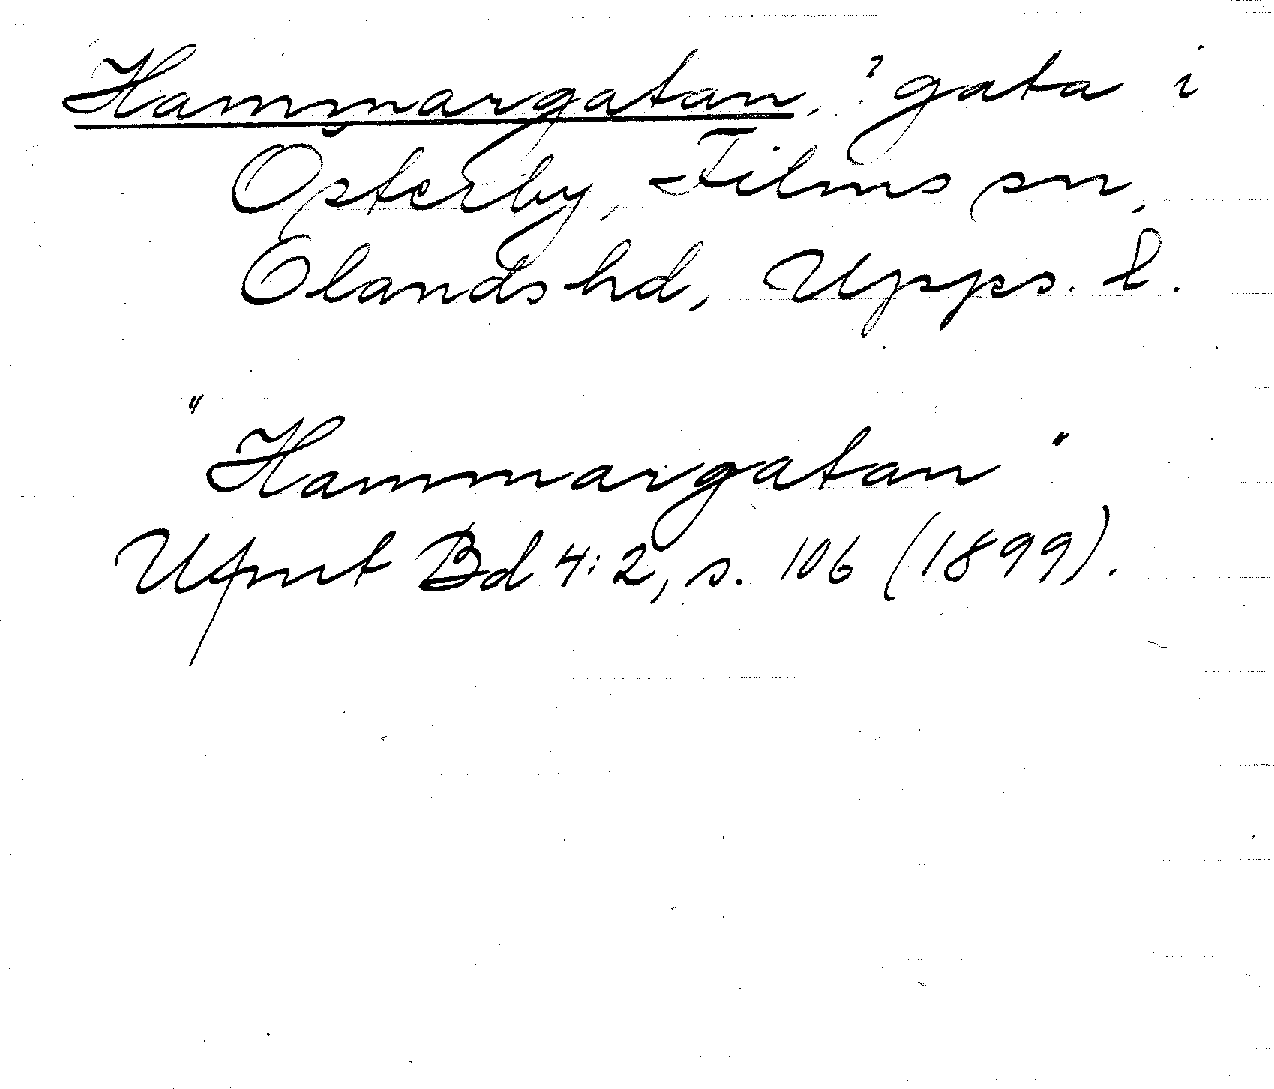 Hammargatan, ? gata i
Österby, Films sn,
Olands hd, Upps. l.
"Hammargatan"
Ufmt Bd 4:2, s. 106 (1899).